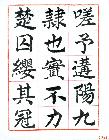 嗟予遘陽九
隸也實不力
楚囚纓其冠